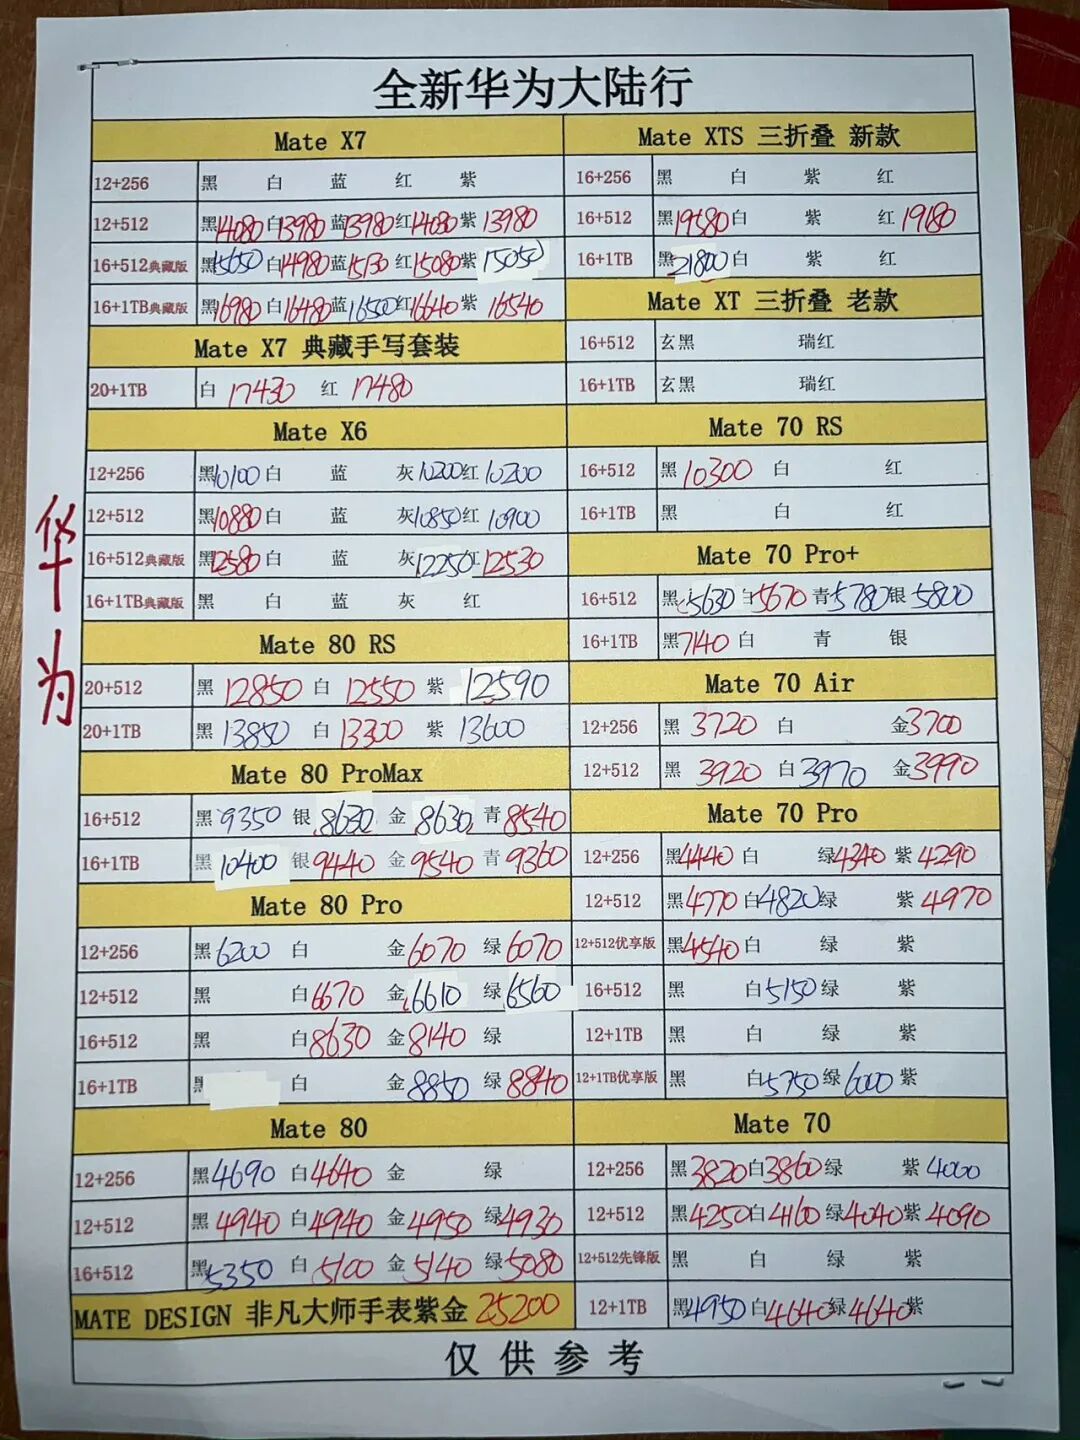 全新华为大陆行
Mate X7
12+256 黑 白 蓝 红 紫
12+512 黑14080 白13980 蓝13980 红14080 紫13980
16+512典藏版 黑15050 白14980 蓝15130 红15080 紫15050
16+1TB典藏版 黑16980 白16480 蓝16500 红16640 紫16540
Mate X7 典藏手写套装
20+1TB 白17430 红17480
Mate X6
12+256 黑10100 白 蓝 灰10200 红10200
12+512 黑10880 白 蓝 灰10850 红10900
16+512典藏版 黑12580 白 蓝 灰12250 红12530
16+1TB典藏版 黑 白 蓝 灰 红
Mate 80 RS
20+512 黑12850 白12550 紫12590
20+1TB 黑13850 白13300 紫13600
Mate 80 ProMax
16+512 黑9350 银8630 金8630 青8540
16+1TB 黑10400 银9440 金9540 青9360
Mate 80 Pro
12+256 黑6200 白 金6070 绿6070
12+512 黑 白6670 金6610 绿6560
16+512 黑 白8630 金8140 绿
16+1TB 黑 白 金8850 绿8840
Mate 80
12+256 黑4690 白4640 金 绿
12+512 黑4940 白4940 金4950 绿4930
16+512 黑5350 白5100 金5140 绿5080
MATE DESIGN 非凡大师手表紫金 25200
Mate XTS 三折叠 新款
16+256 黑 白 紫 红
16+512 黑19580 白 紫 红19180
16+1TB 黑21800 白 紫 红
Mate XT 三折叠 老款
16+512 玄黑 瑞红
16+1TB 玄黑 瑞红
Mate 70 RS
16+512 黑10300 白 红
16+1TB 黑 白 红
Mate 70 Pro+
16+512 黑5630 白5670 青5780 银5800
16+1TB 黑7140 白 青 银
Mate 70 Air
12+256 黑3720 白 金3700
12+512 黑3920 白3970 金3990
Mate 70 Pro
12+256 黑4440 白 绿4340 紫4290
12+512 黑4770 白4820 绿 紫4970
12+512优享版 黑4540 白 绿 紫
16+512 黑 白5150 绿 紫
12+1TB 黑 白 绿 紫
12+1TB优享版 黑 白5750 绿6000 紫
Mate 70
12+256 黑3820 白3860 绿 紫4000
12+512 黑4250 白4160 绿4040 紫4090
12+512先锋版 黑 白 绿 紫
12+1TB 黑4950 白4640 绿4640 紫
仅供参考
华为